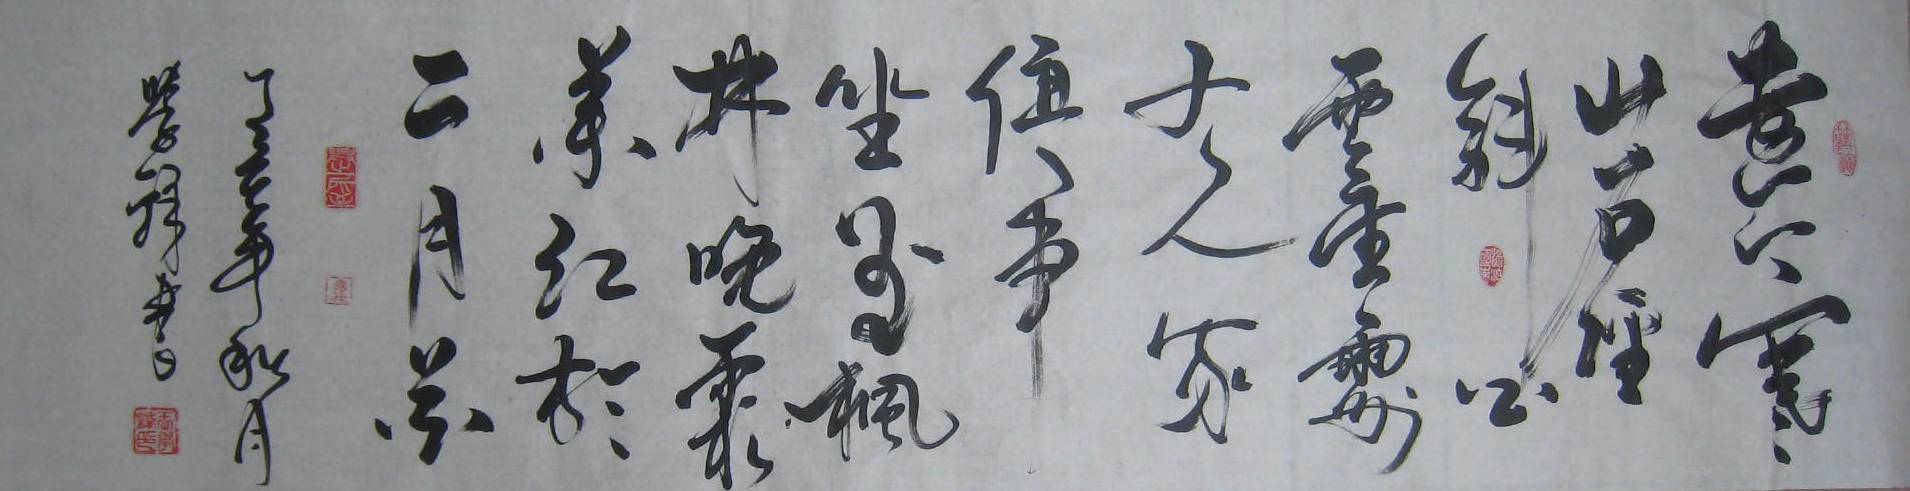 遠上寒
山石徑
斜白
雲生處
有人家
停車
坐愛楓
林晚霜
葉紅於
二月花
年秋月